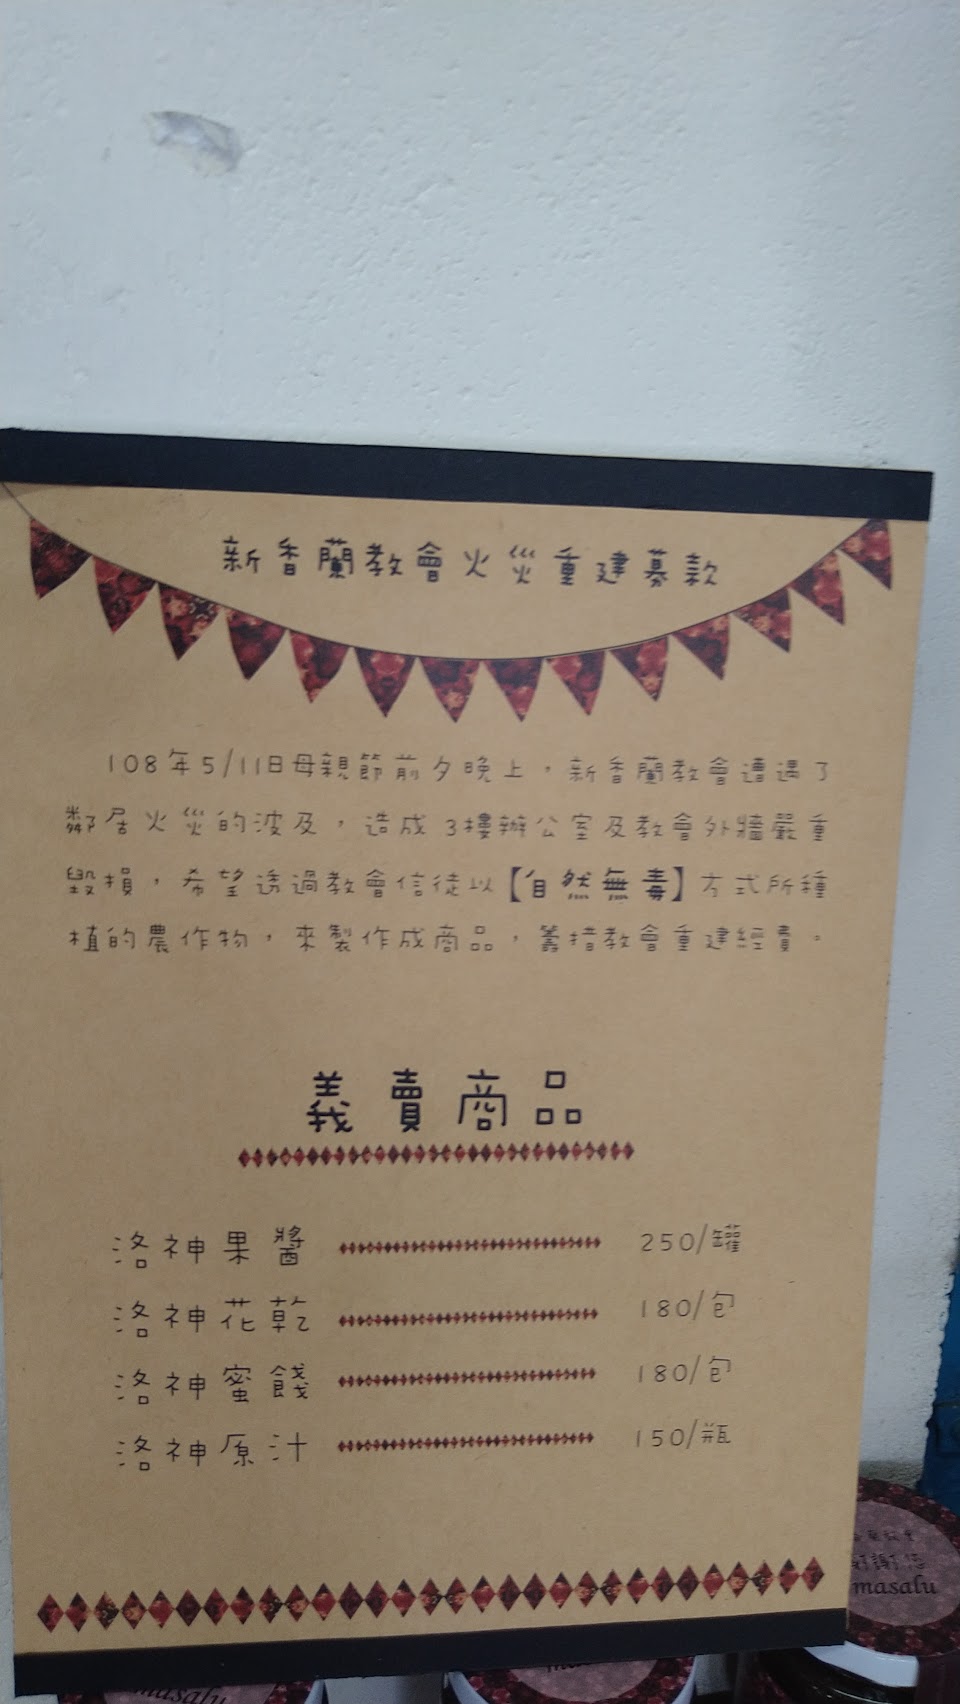 新香蘭教會火災重建募款
108年5/11日母親節前夕晚上，新香蘭教會遭遇了
鄰居火災的波及，造成3樓辦公室及教會外牆嚴重
毀損，希望透過教會信徒以【自然無毒】方式所種
植的農作物，來製作成商品，籌措教會重建經費。
義賣商品
洛神果醬 250/罐
洛神花乾 180/包
洛神蜜餞 180/包
洛神原汁 150/瓶
謝您
masalu
masalu